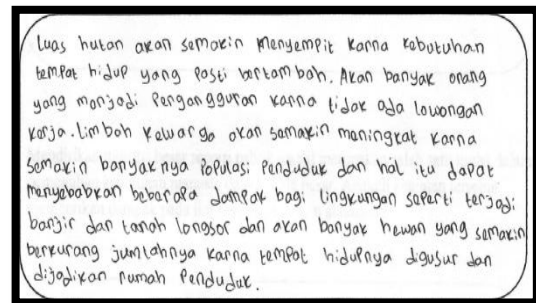 Luas hutan akan semakin menyempit karna kebutuhan
tempat hidup yang pasti bertambah. Akan banyak orang
yang menjadi pengangguran karna tidak ada lowongan
kerja. Limbah keluarga akan semakin meningkat karna
semakin banyaknya populasi penduduk dan hal itu dapat
menyebabkan beberapa dampak bagi lingkungan seperti terjadi
banjir dan tanah longsor dan akan banyak hewan yang semakin
berkurang jumlahnya karna tempat hidupnya digusur dan
dijadikan rumah penduduk.